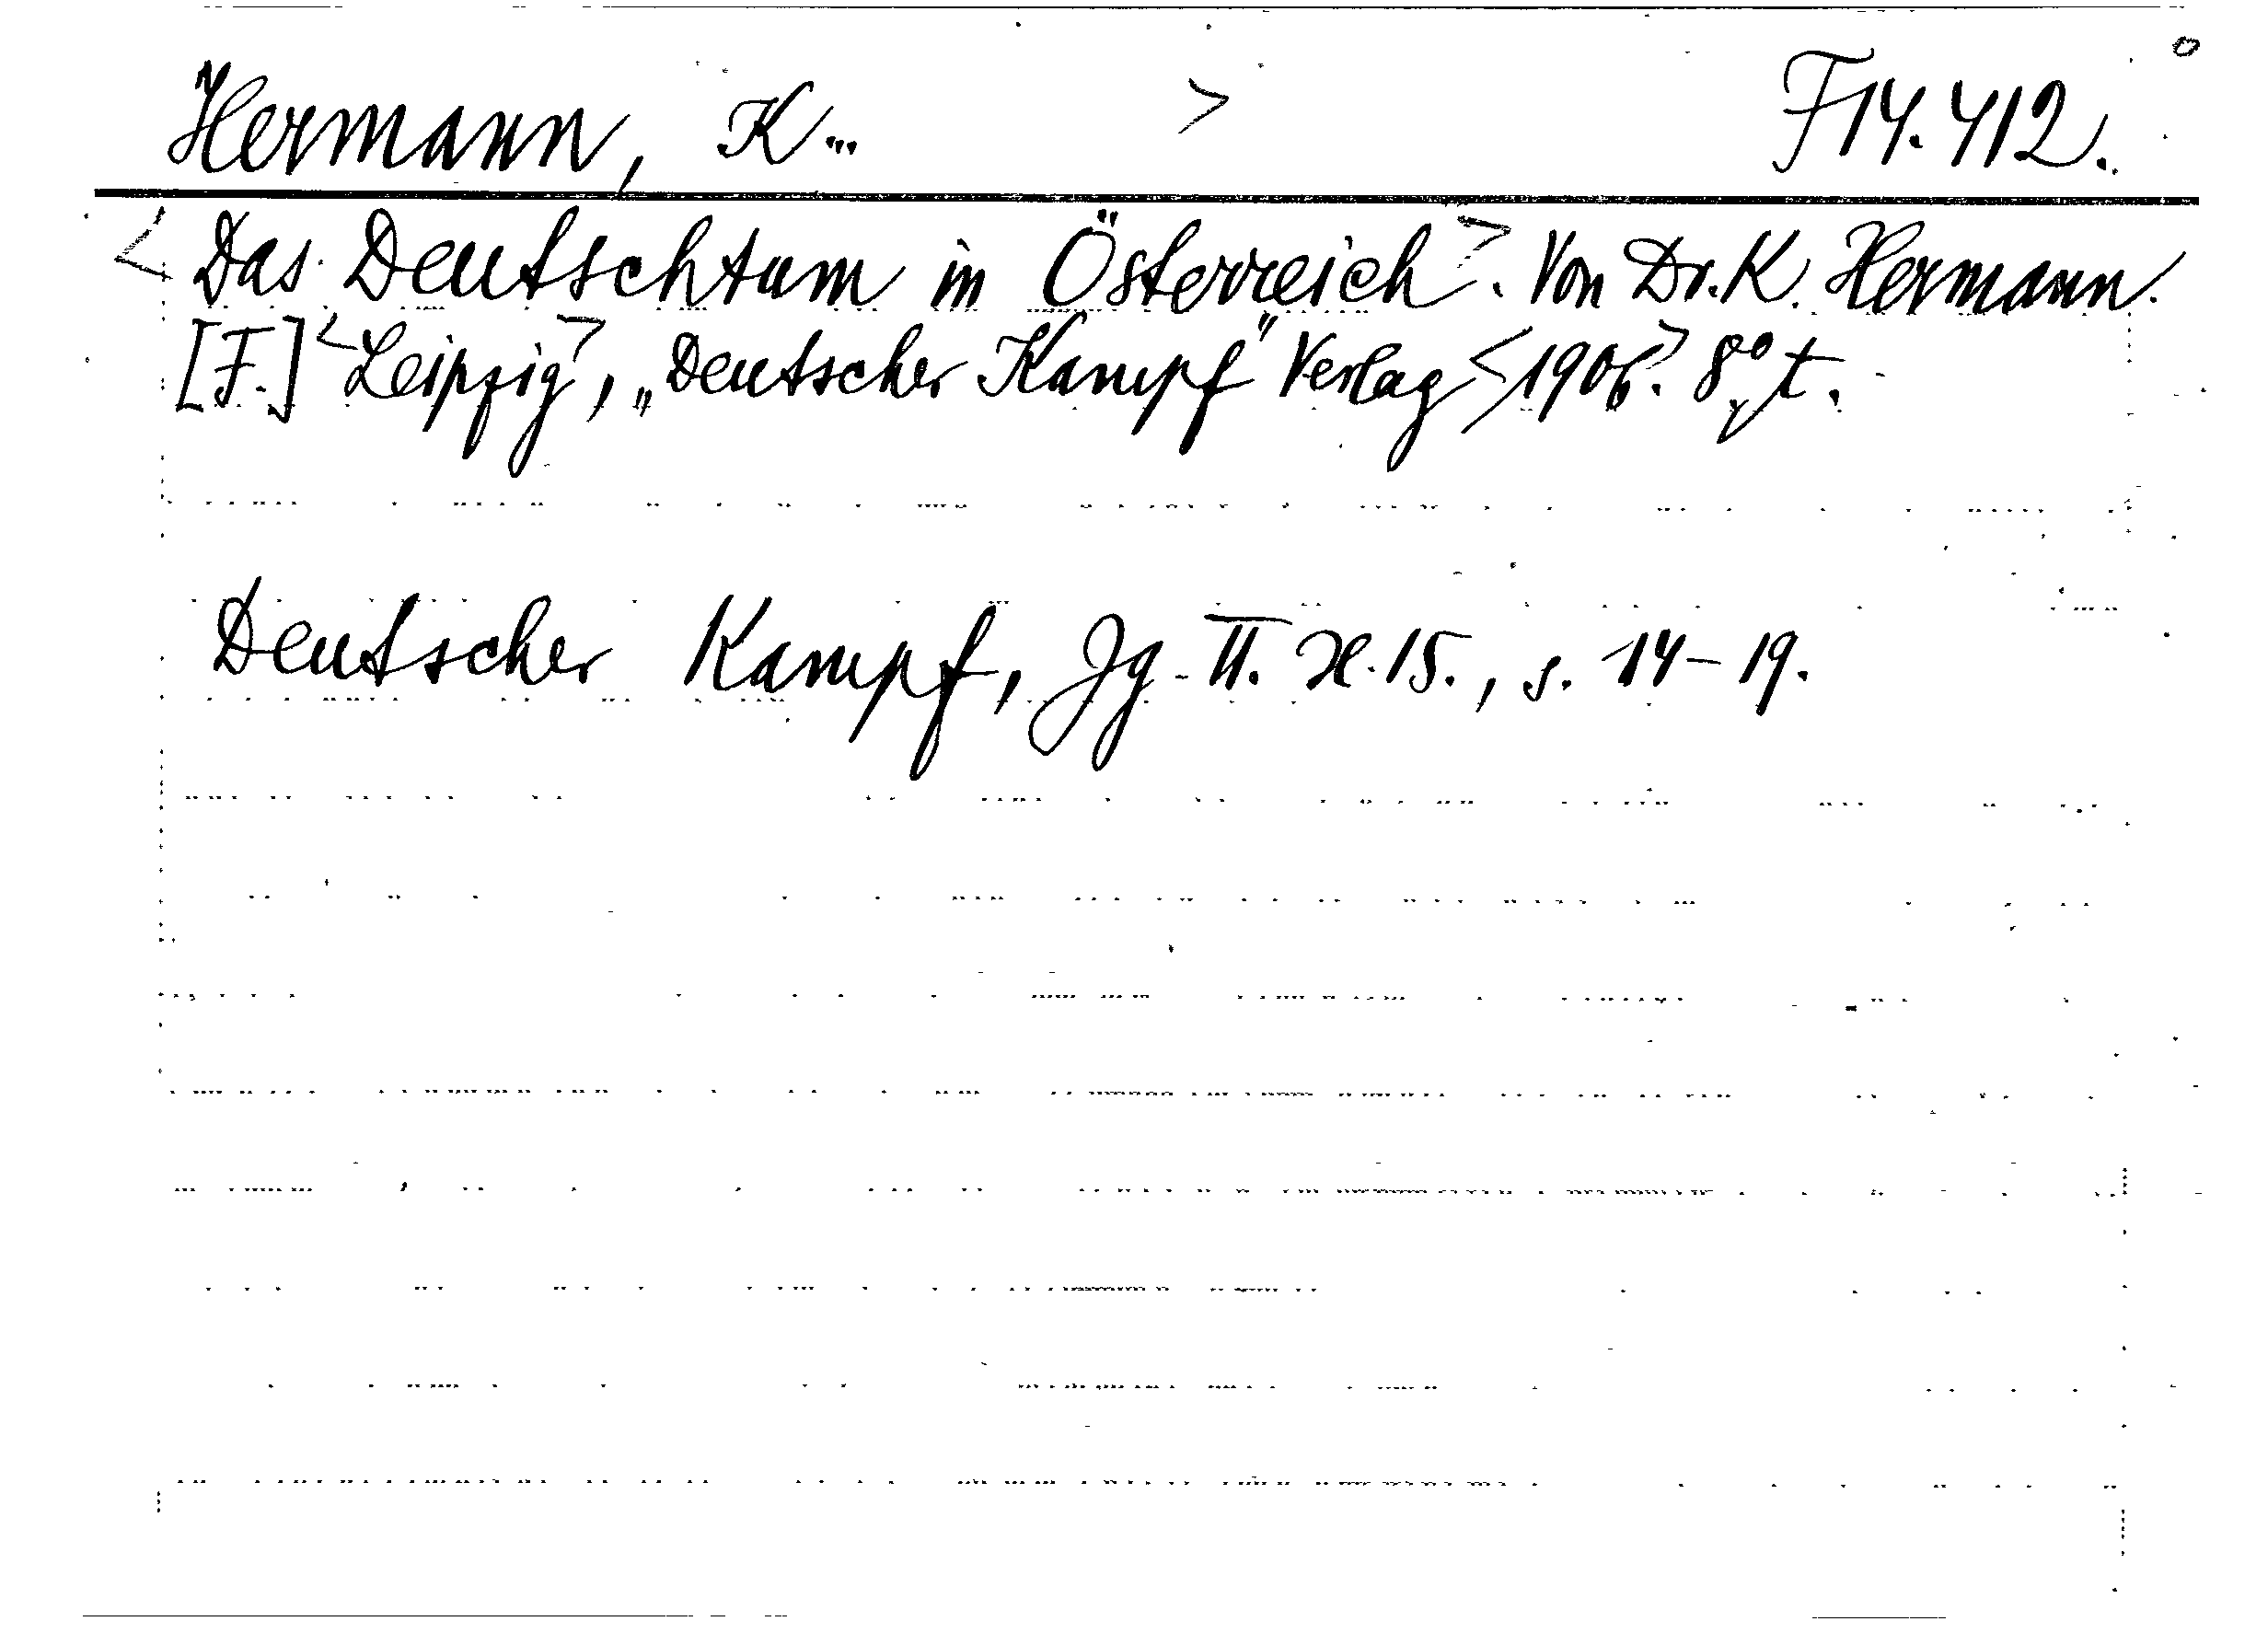 Hermann, K... > F14.412.
<Das Deutschtum in Österreich>. Von Dr. K. Hermann.
[F.] <Leipzig>, „Deutscher Kampf" Verlag <1906>. 8° t.
Deutscher Kampf, Jg. II. H. 15., s. 14-19.